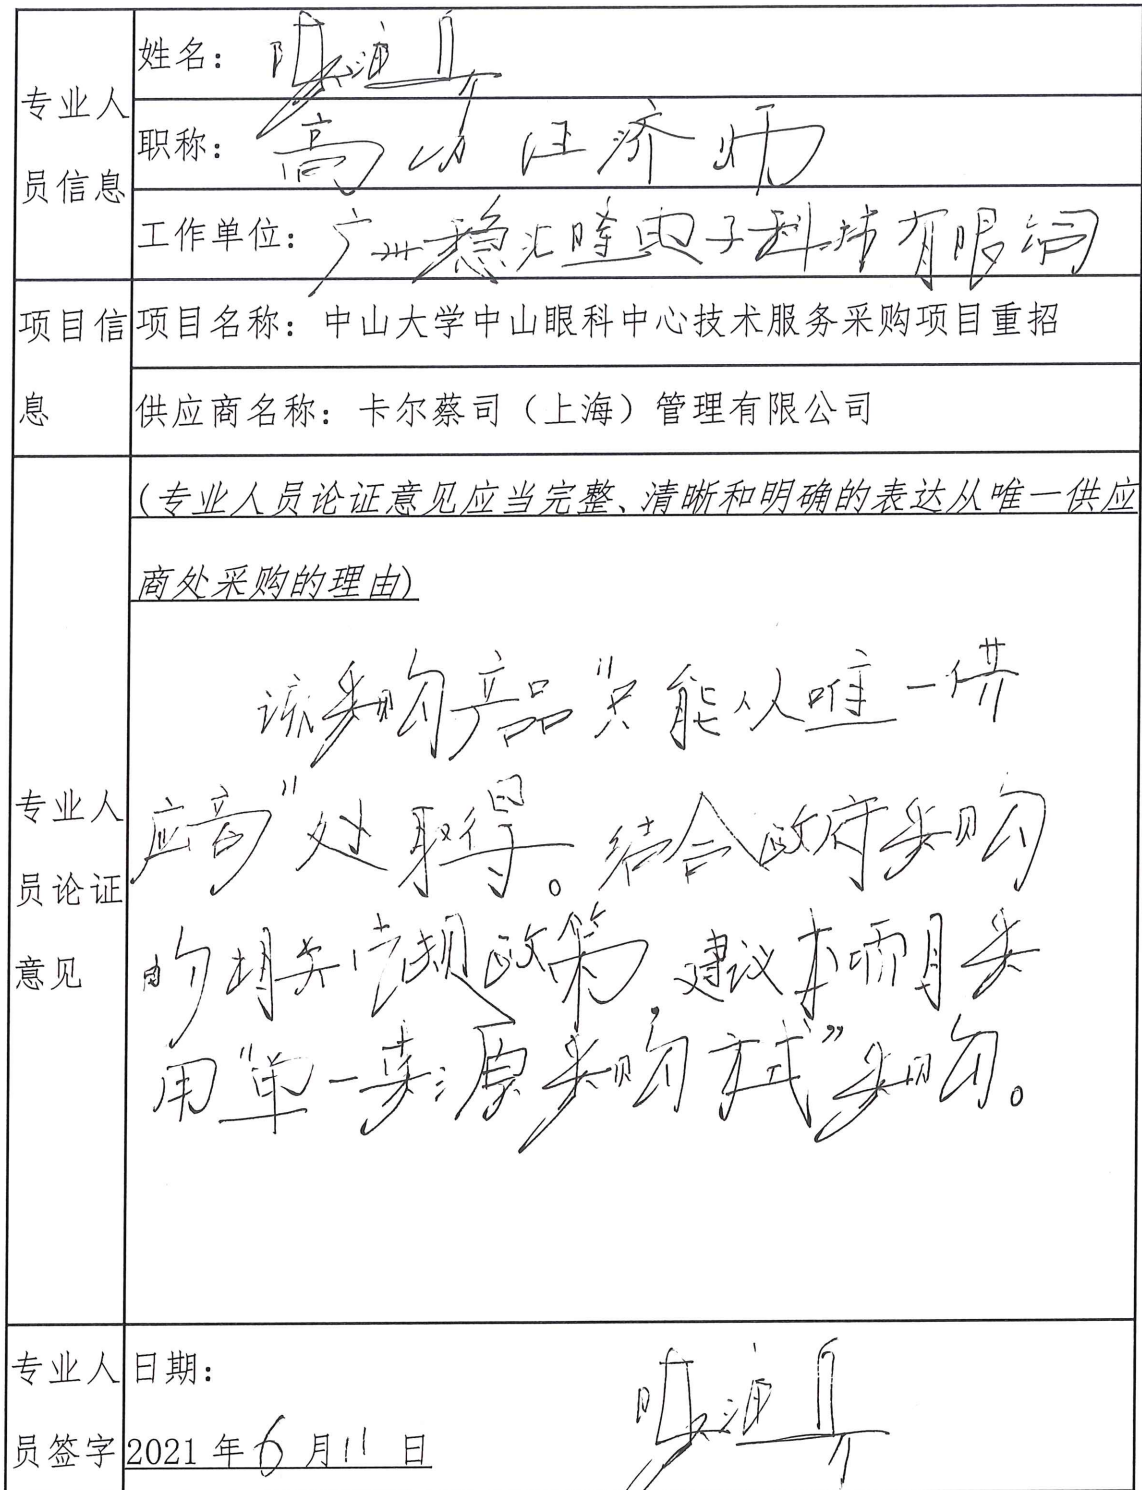 专业人员信息
姓名：
职称：高级经济师
工作单位：广州稳汇隆电子科技有限公司
项目信息
项目名称：中山大学中山眼科中心技术服务采购项目重招
供应商名称：卡尔蔡司（上海）管理有限公司
(专业人员论证意见应当完整、清晰和明确的表达从唯一供应
商处采购的理由)
专业人员论证意见
该采购产品“只能从唯一供
应商”处取得。结合政府采购
的相关法规政策，建议本项目采
用“单一来源采购方式”采购。
专业人员签字
日期：
2021年6月11日